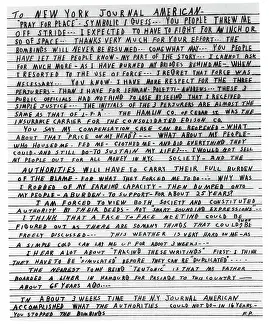 TO NEW YORK JOURNAL AMERICAN-
"PRAY FOR PEACE" - SYMBOLIC I GUESS -- YOU PEOPLE THREW ME
OFF STRIDE - I EXPECTED TO HAVE TO FIGHT FOR AN INCH OR
SO OF SPACE -- THANKS VERY MUCH FOR YOUR EFFORT - THE
BOMBINGS WILL NEVER BE RESUMED - COME WHAT MAY -- YOU PEOPLE
HAVE LET THE PEOPLE KNOW MY PART OF THE STORY -- I CANNOT ASK
FOR MUCH MORE - AS I HAVE BURNED MY BRIDGES BEHIND ME - WHEN
I RESORTED TO THE USE OF FORCE -- I REGRET THAT FORCE WAS
NECESSARY - YOU KNOW I HAVE MORE RESPECT FOR THE THREE
PERJURERS - THAN I HAVE FOR LEHMAN - POLETTI - ANDREWS - THESE 3
PUBLIC OFFICIALS HAD NOTHING TO LOSE BY SEEING THAT I RECEIVED
SIMPLE JUSTICE -- THE INITIALS OF THE 3 PERJURERS ARE ALMOST THE
SAME AS THAT OF J-P-A THE
INSURANCE CARRIER FOR THE CONSOLIDATED EDISON CO.
YOU SAY MY COMPENSATION CASE CAN BE REOPENED - WHAT
ABOUT THAT PRICE ON MY HEAD -- WHAT ABOUT MY PEOPLE
WHO HOUSED ME - FED ME - CLOTHED ME - AND DID EVERYTHING THAT
COULD - AND STILL DO TO SUSTAIN MY LIFE -- I WOULD NOT SELL
MY PEOPLE OUT FOR ALL MONEY IN NYC SOCIETY - AND THE
AUTHORITIES WILL HAVE TO CARRY THEIR FULL BURDEN
OF THE BLAME - FOR WHAT THEY FORCED ME TO DO -- WHY WAS
I ROBBED OF MY EARNING CAPACITY - THEN DUMPED ONTO
MY PEOPLE - A BURDEN - TO SUPPORT FOR ABOUT 25 YEARS!
I AM FORCED TO VIEW BOTH, SOCIETY AND CONSTITUTED
AUTHORITY BY THEIR DEEDS - NOT SMART SOUNDING EXPRESSIONS --
I THINK THAT A FACE TO FACE MEETING COULD BE
FIGURED OUT AS THERE ARE SOME THINGS THAT COULD BE
FREELY DISCUSSED -- THIS WEATHER IS VERY HARD ON ME - AS
A SIMPLE COLD CAN LAY ME UP FOR ABOUT 3 WEEKS --
I HEAR A LOT ABOUT FAKING THESE WRITINGS - FIRST I THINK
THEY HAVE TO BE SIMULATED BEFORE THEY CAN BE DUPLICATED --
THE NEAREST TO MY BEING TEUTONIC IS THAT MY FATHER
BOARDED A LINER IN HAMBURG FOR PASSAGE TO THIS COUNTRY --
ABOUT 65 YEARS AGO ---
IN ABOUT 3 WEEKS TIME THE N.Y. JOURNAL AMERICAN
ACCOMPLISHED WHAT THE AUTHORITIES COULD NOT DO - IN 16 YEARS -
YOU STOPPED THE BOMBINGS F.P.